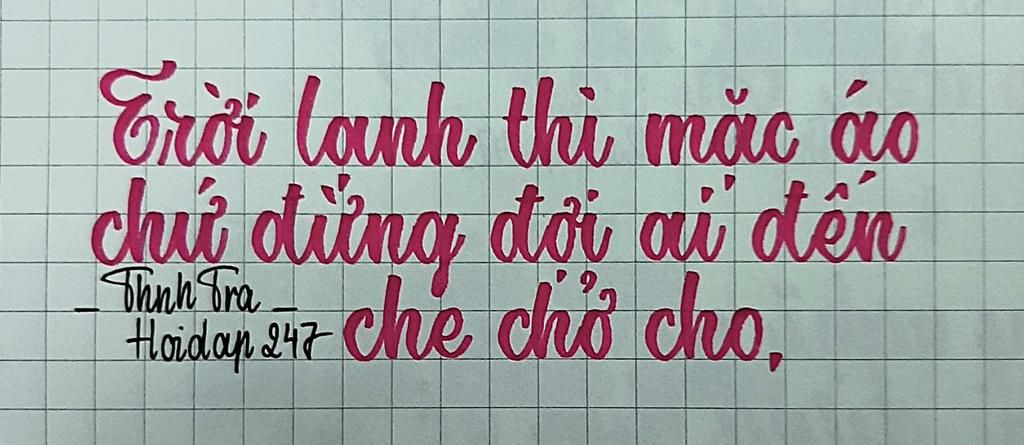 Trời lanh thì mặc áo
chứ đừng đợi ai đến
che chở cho.
_ Thnh Tra _
Hoidap 247